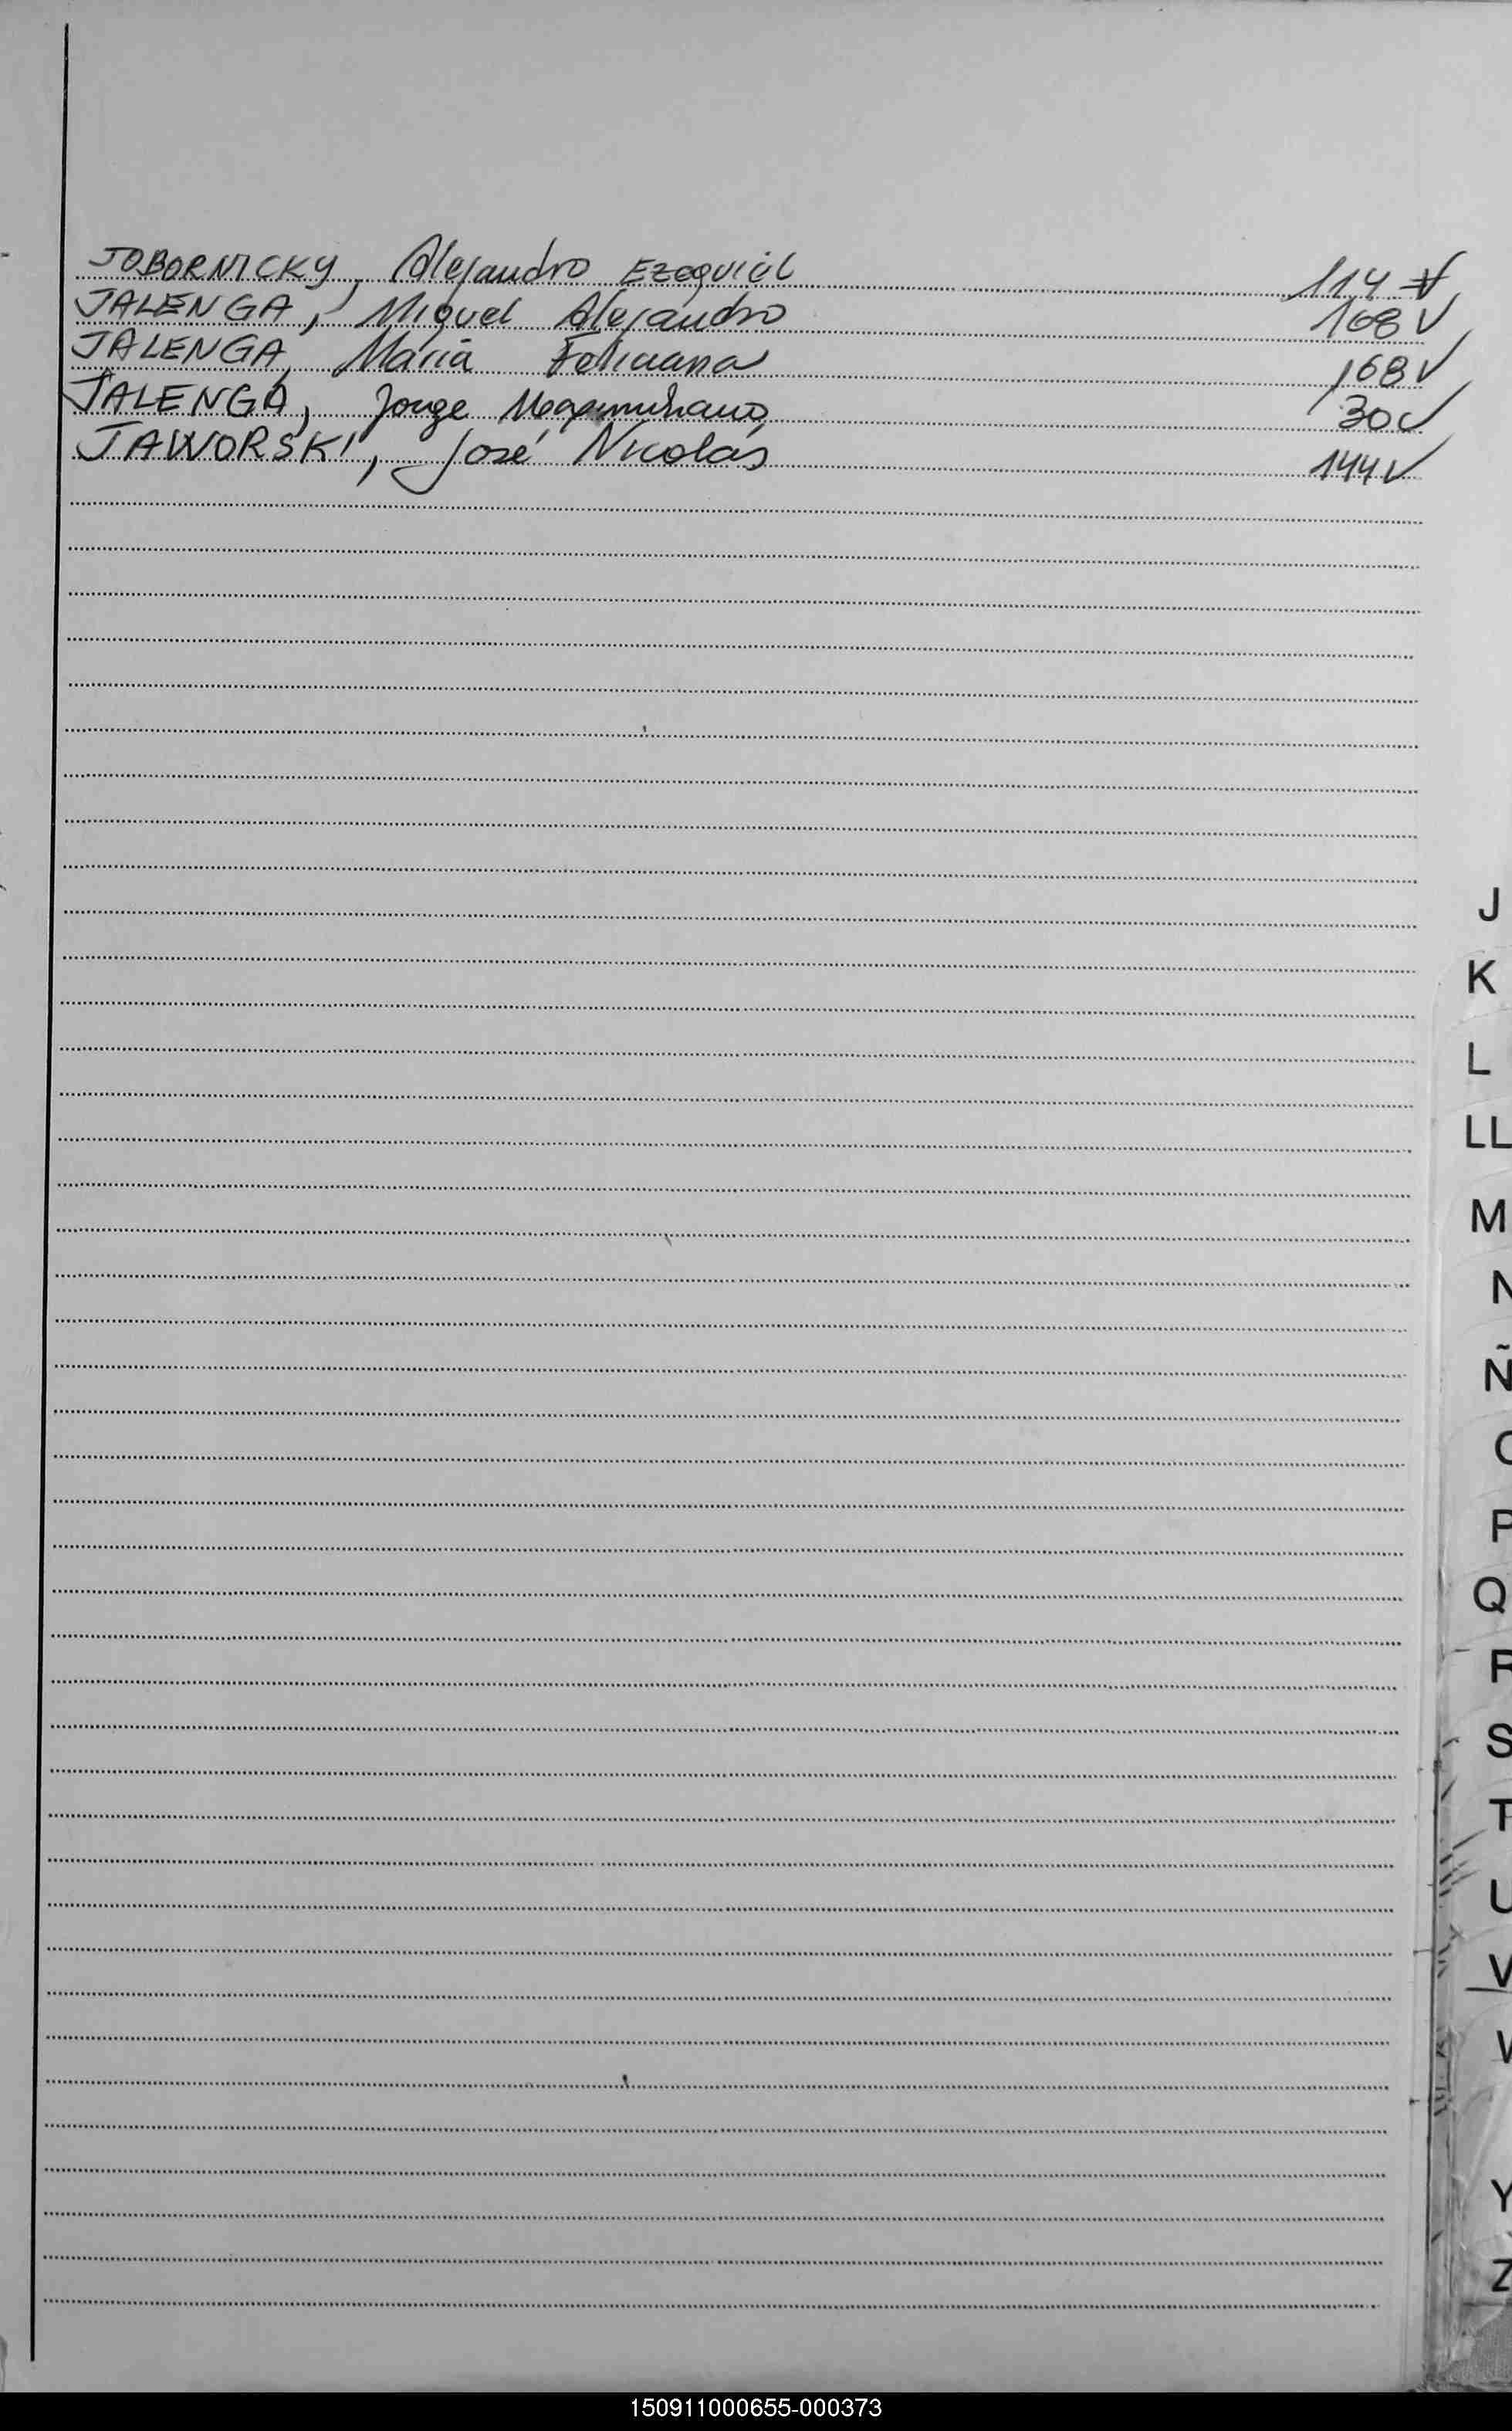 JOBORNICKY, Alejandro Ezequiel 114 V
JALENGA, Miguel Alejandro 168 V
JALENGA, María Feliciana 168 V
JALENGA, Jorge Maximiliano 30 V
JAWORSKI, José Nicolás 144 V
J
K
L
LL
M
N
Ñ
O
P
Q
R
S
T
U
V
Y
Z
150911000655-000373